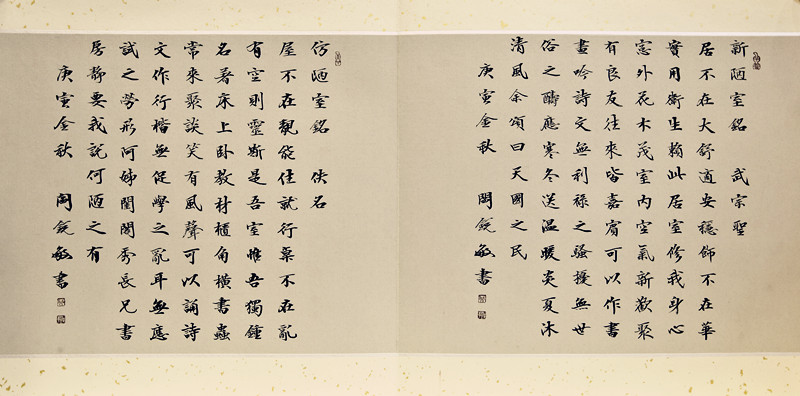 新陋室銘 武宗聖
居不在大舒適安穩飾不在華
實用衛生賴此居室修我身心
窓外花木茂室內空氣新歡聚
有良友往來皆嘉賓可以作書
畫吟詩文無利祿之騷擾無世
俗之酬應寒冬送溫暖炎夏沐
清風余頌曰天國之民
庚寅金秋 閆鋭敏書
仿陋室銘 佚名
屋不在靚能住就行桌不在亂
有空則靈斯是吾室惟吾獨鍾
名著床上卧教材櫃角橫書蟲
常來聚談笑有風聲可以誦詩
文作行楷無促學之亂耳無應
試之勞形阿姊閨閣秀長兄書
房静要我說何陋之有
庚寅金秋 閆鋭敏書